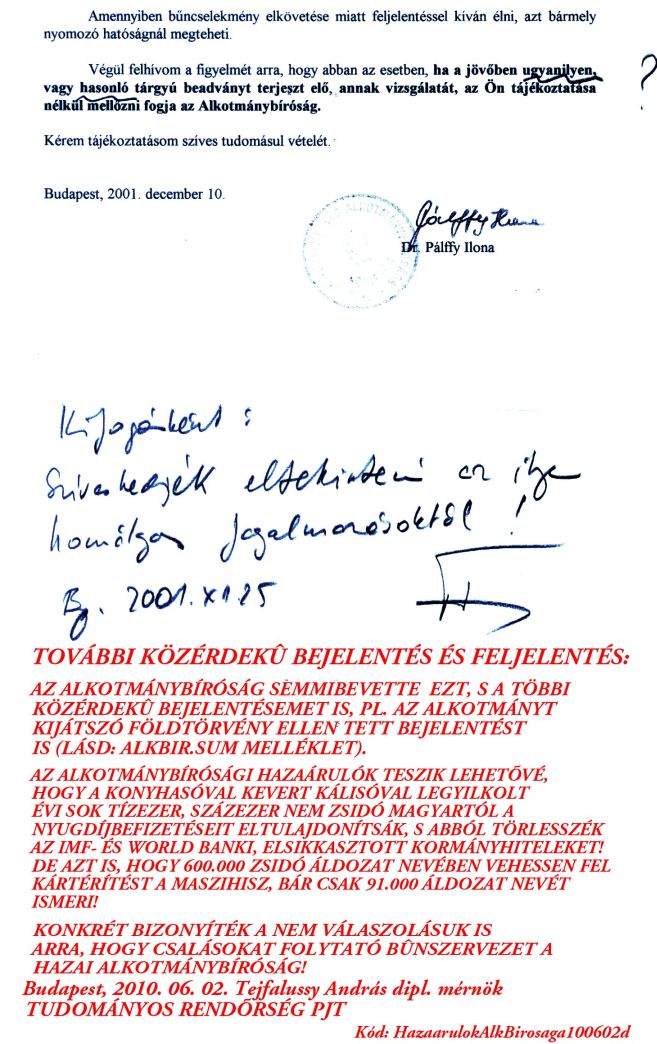 Amennyiben bűncselekmény elkövetése miatt feljelentéssel kíván élni, azt bármely
nyomozó hatóságnál megteheti.
Végül felhívom a figyelmét arra, hogy abban az esetben, ha a jövőben ugyanilyen,
vagy hasonló tárgyú beadványt terjeszt elő, annak vizsgálatát, az Ön tájékoztatása
nélkül mellőzni fogja az Alkotmánybíróság.
?
Kérem tájékoztatásom szíves tudomásul vételét.
Budapest, 2001. december 10.
Pálffy Ilona
Dr. Pálffy Ilona
Kifogásként :
Szíveskedjék eltekinteni az ilyen
homályos fogalmazásoktól !
Bp. 2001. XII. 25
TOVÁBBI KÖZÉRDEKÛ BEJELENTÉS ÉS FELJELENTÉS:
AZ ALKOTMÁNYBÍRÓSÁG SEMMIBEVETTE EZT, S A TÖBBI
KÖZÉRDEKÛ BEJELENTÉSEMET IS, PL. AZ ALKOTMÁNYT
KIJÁTSZÓ FÖLDTÖRVÉNY ELLEN TETT BEJELENTÉST
IS (LÁSD: ALKBIR.SUM MELLÉKLET).
AZ ALKOTMÁNYBÍRÓSÁGI HAZAÁRULÓK TESZIK LEHETŐVÉ,
HOGY A KONYHASÓVAL KEVERT KÁLISÓVAL LEGYILKOLT
ÉVI SOK TÍZEZER, SZÁZEZER NEM ZSIDÓ MAGYARTÓL A
NYUGDÍJBEFIZETÉSEIT ELTULAJDONÍTSÁK, S ABBÓL TÖRLESSZÉK
AZ IMF- ÉS WORLD BANKI, ELSIKKASZTOTT KORMÁNYHITELEKET!
DE AZT IS, HOGY 600.000 ZSIDÓ ÁLDOZAT NEVÉBEN VEHESSEN FEL
KÁRTÉRÍTÉST A MASZIHISZ, BÁR CSAK 91.000 ÁLDOZAT NEVÉT
ISMERI!
KONKRÉT BIZONYÍTÉK A NEM VÁLASZOLÁSUK IS
ARRA, HOGY CSALÁSOKAT FOLYTATÓ BÛNSZERVEZET A
HAZAI ALKOTMÁNYBÍRÓSÁG!
Budapest, 2010. 06. 02. Tejfalussy András dipl. mérnök
TUDOMÁNYOS RENDŐRSÉG PJT
Kód: HazaarulokAlkBirosaga100602d